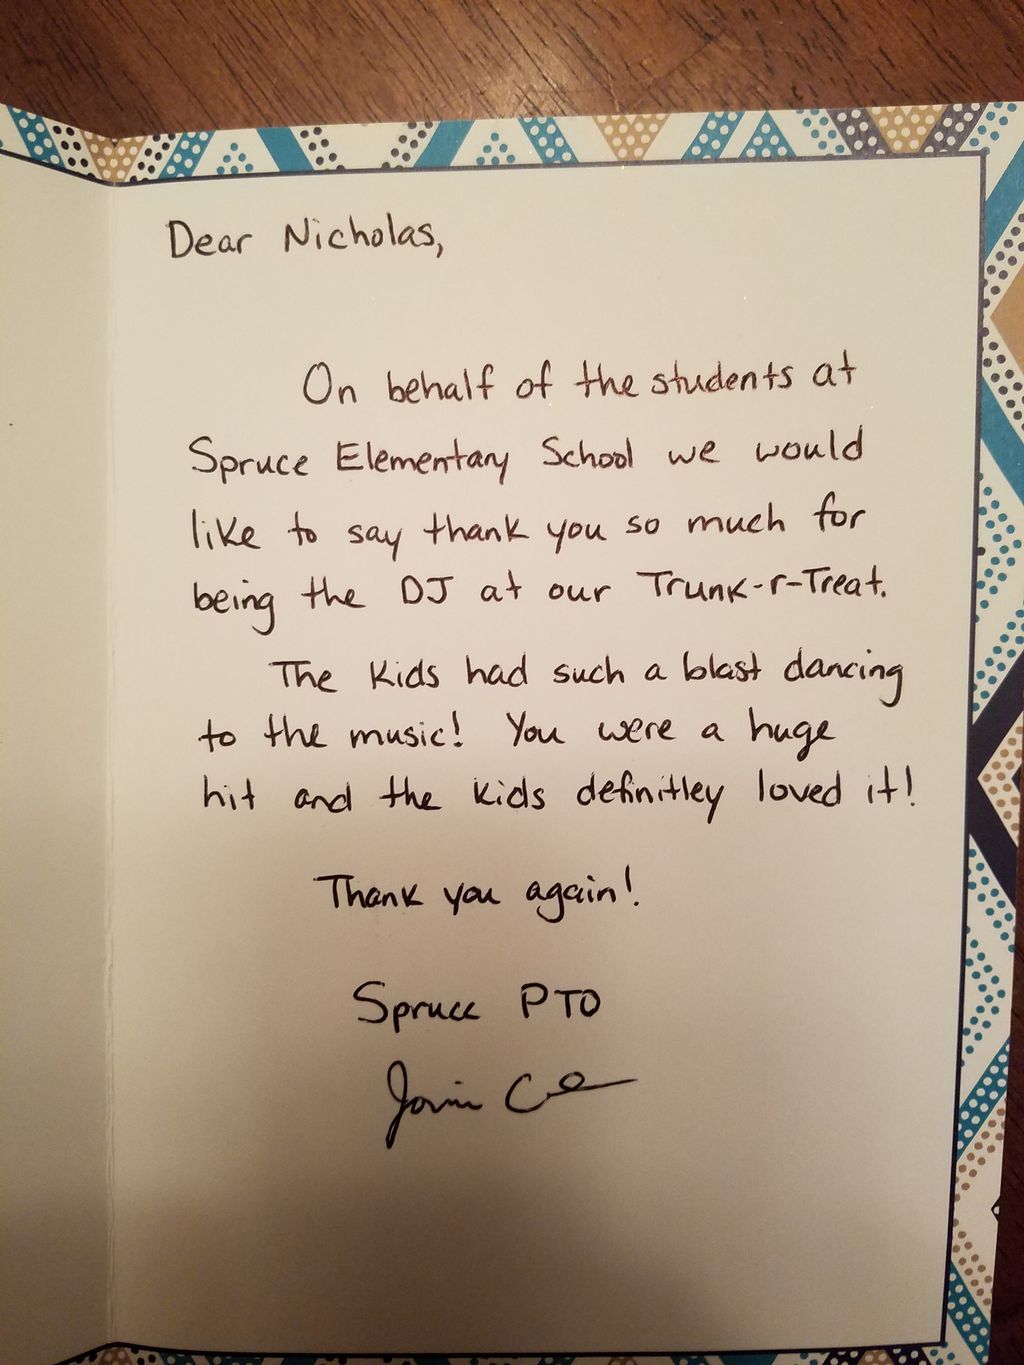 Dear Nicholas,
On behalf of the students at
Spruce Elementary School we would
like to say thank you so much for
being the DJ at our Trunk-r-Treat.
The kids had such a blast dancing
to the music! You were a huge
hit and the kids definitley loved it!
Thank you again!
Spruce PTO